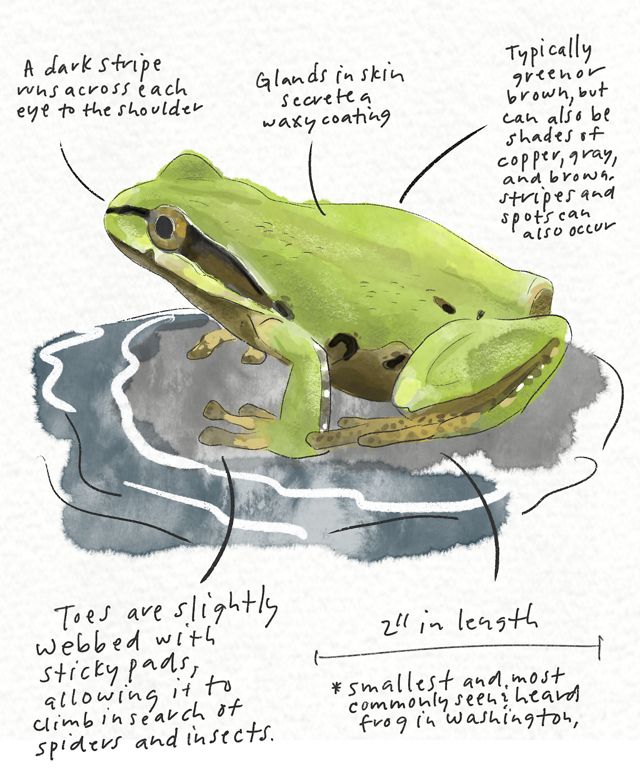 A dark stripe
runs across each
eye to the shoulder
Glands in skin
secrete a
waxy coating
Typically
green or
brown, but
can also be
shades of
copper, gray,
and brown.
stripes and
spots can
also occur
Toes are slightly
webbed with
sticky pads,
allowing it to
climb in search of
spiders and insects.
2" in length
* smallest and most
commonly seen & heard
frog in Washington,